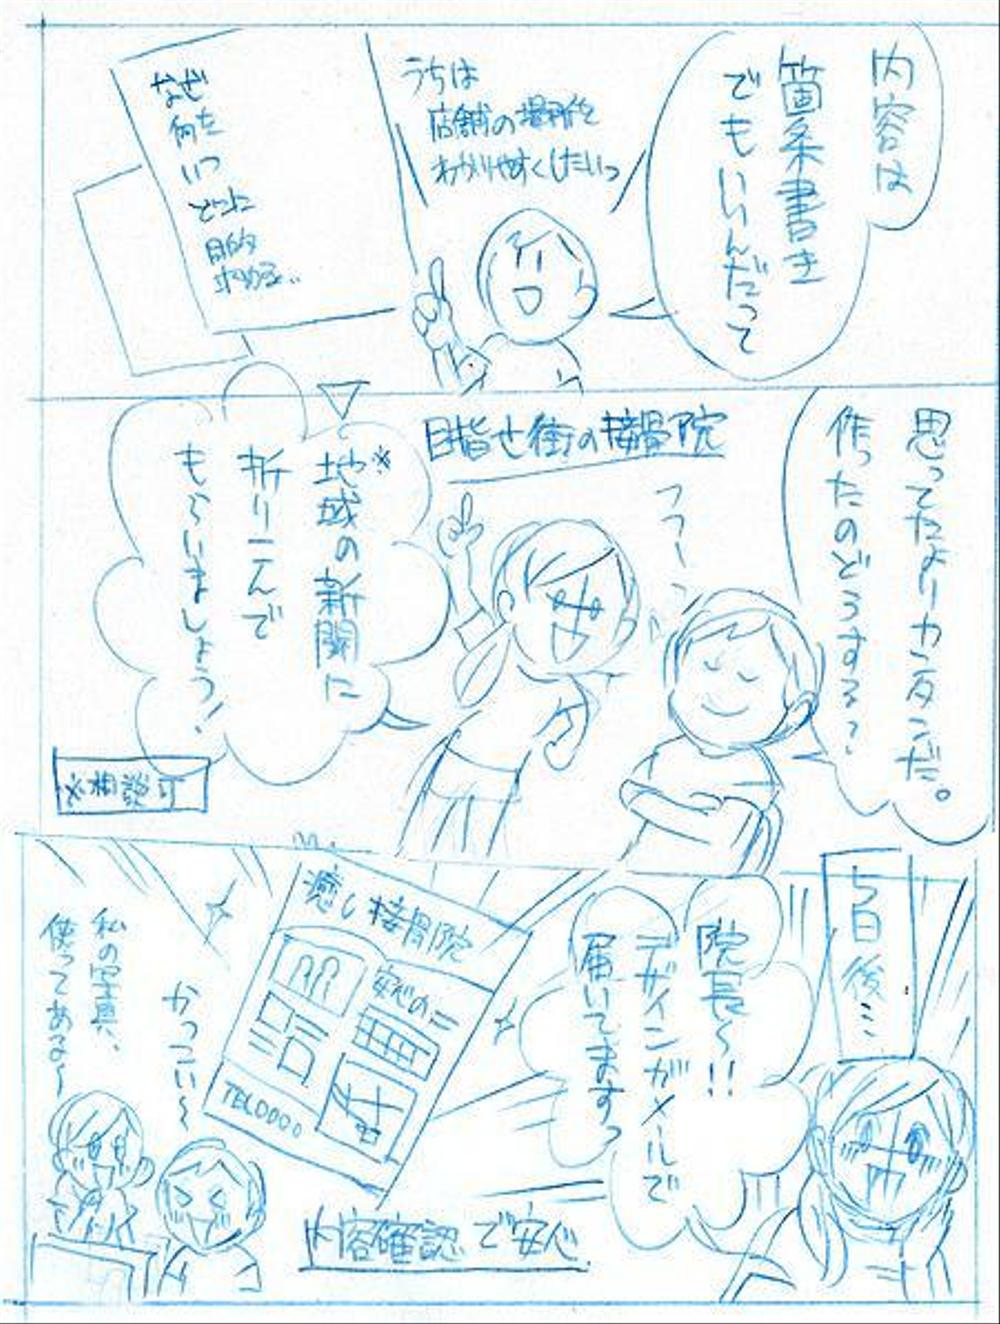 内容は
箇条書き
でもいいんだって
うちは
店舗の場所を
わかりやすくしたいっ
なぜ
何を
いつ
どこに
目的
求める…
思ってたよりカンタンだ。
作ったのどうする?
フフーン
目指せ街の接骨院
※地域の新聞に
折り二んで
もらいましょう!
※相談可
5日後…
院長〜!!
デザインがメールで
届いてますっ
癒し接骨院
安心の
TEL0000
かっこい〜
私の写真、
使ってある〜
内容確認で安心